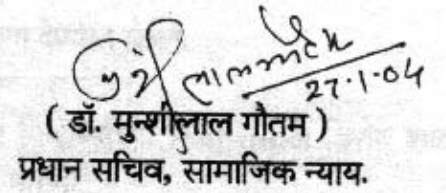 27.1.04
( डॉ. मुन्शीलाल गौतम )
प्रधान सचिव, सामाजिक न्याय.